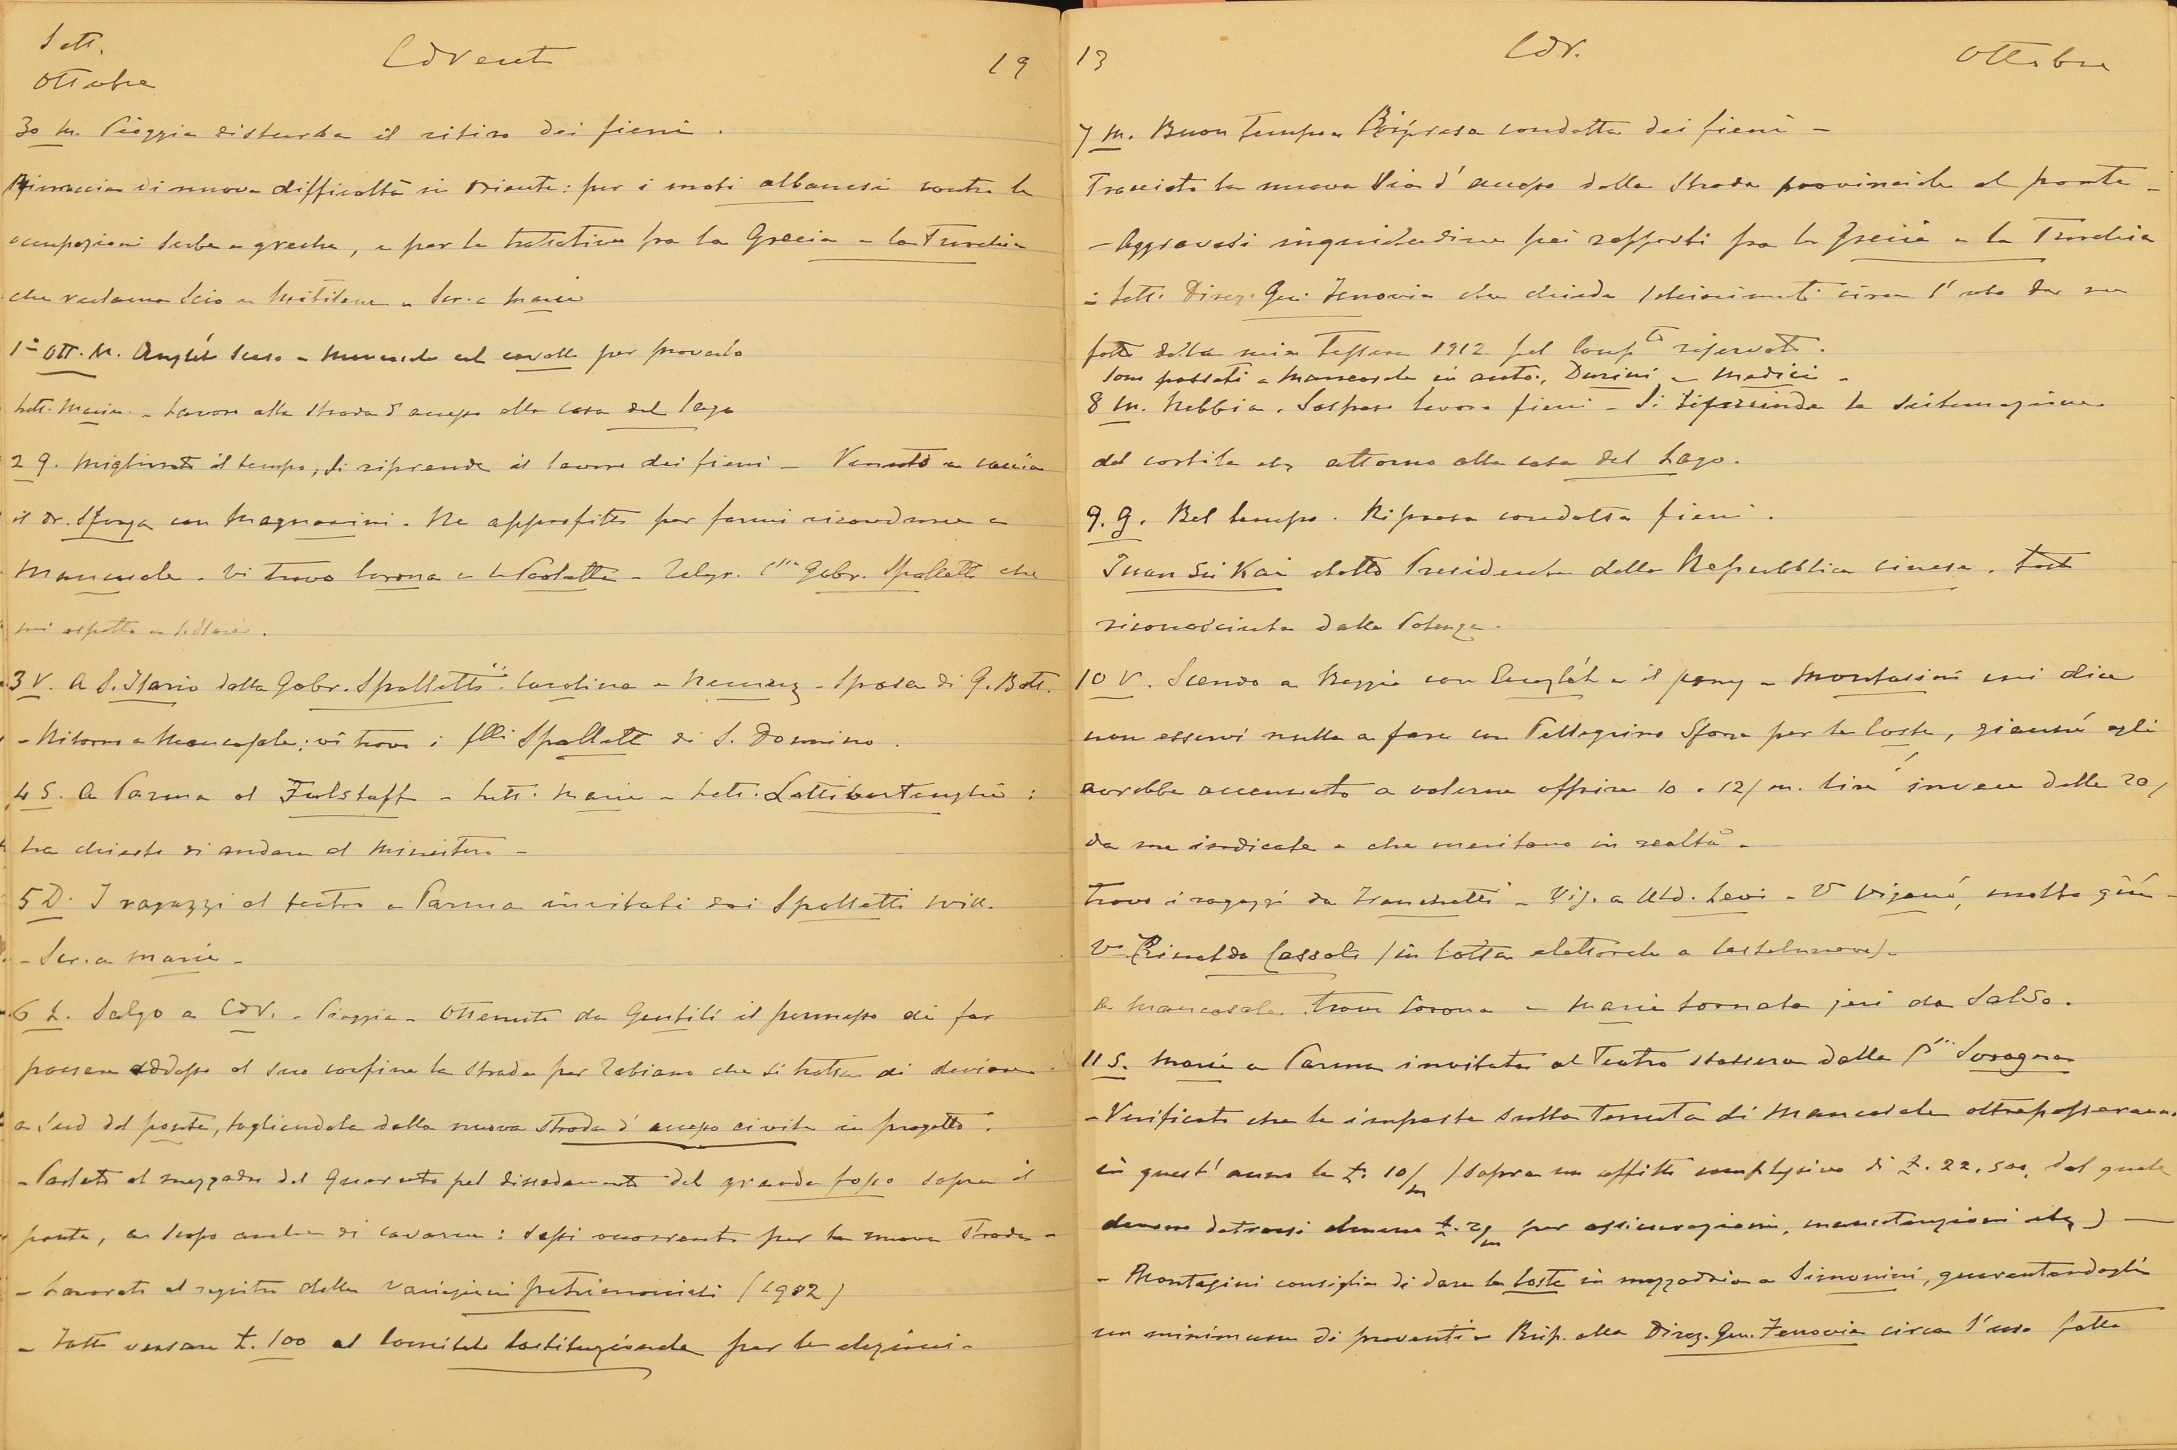 Sett.
Ottobre
CdV
19
30 M. Pioggia disturba il ritiro dei fieni.
Minaccia di nuove difficoltà in Oriente: per i moti albanesi contro le
occupazioni serbe e greche, e per le trattative fra la Grecia e la Turchia
che reclama Scio e Mitilene - Scr. a Marie
1° Ott. M. scese a Mancasale col cavallo per provarlo
Lett. Marie - Lavoro alla strada d'accesso alla casa del Lago
2 G. Migliorato il tempo, si riprende il lavoro dei fieni - Venuto a caccia
il Dr. Sforza con Magnanini. Ne approfitto per farmi ricondurre a
Mancasale. Vi trovo Corona e la Paoletta - Telegr. C.ssa Gabr. Spalletti che
mi aspetta a S. Ilario.
3 V. A S. Ilario dalla Gabr. Spalletti. Carolina e - Sposa di G. Batt.
- Ritorno a Mancasale; vi trovo i flli Spalletti di S. Donnino.
4 S. A Parma al Falstaff - Lett. Marie - Lett. Lottiburtenghi:
ha chiesto di andare al Ministero -
5 D. I ragazzi al teatro a Parma invitati dai Spalletti
- Scr. a Marie -
6 L. Salgo a CdV. - Pioggia - Ottenuto da Gentili il permesso di far
passare addosso al suo confine la strada per Zabiano che si tratta di deviare
a Sud del ponte, togliendola dalla nuova strada d'accesso civile in progetto.
- Parlato al mezzadro del Querceto pel dissodamento del grande fosso sopra il
ponte, a scopo anche di cavarne i sassi occorrenti per la nuova strada -
- Lavorato al registro delle variazioni patrimoniali (1902)
- Fatto versare £. 100 al Comitato Costituzionale per le elezioni -
13
CdV.
Ottobre
7 M. Buon tempo e Ripresa condotta dei fieni -
Tracciata la nuova Via d'accesso dalla strada provinciale al ponte -
- Aggravasi inquietudine pei rapporti fra la Grecia e la Turchia
- Lett. Direz. Gen. Ferrovia che chiede schiarimenti circa l'uso da me
fatto della mia tessera 1912 pel comp.to riservato.
Sono passati a Mancasale in auto, Durini e Medici -
8 M. Nebbia. Sospeso lavoro fieni - Si riprende la sistemazione
del cortile etc attorno alla casa del Lago.
9. G. Bel tempo. Ripresa condotta fieni.
Juan Sci Kai eletto Presidente della Repubblica cinese. tosto
riconosciuta dalle Potenze.
10 V. Scendo a Reggio con e il pony - Montasini mi dice
non esservi nulla a fare con Pellegrino Sforza per le Coste, giacché egli
avrebbe accennato a volerne offrire 10 o 12/m. lire invece delle 20/
da me indicate e che meritano in realtà -
Trovo i ragazzi da Franchetti - Vis. a Uld. Levi - Vo Viganò, molto giù -
Vo Rinaldo Cassoli (in lotta elettorale a Castelnuovo) -
A Mancasale. Trovo Corona e Marie tornata jeri da Salso.
11 S. Marie a Parma invitata al Teatro stassera dalla P.ssa Soragna
- Verificato che le imposte sulla Tenuta di Mancasale oltrepasseranno
in quest'anno le £. 10/m (sopra un affitto complessivo di £. 22.500, dal quale
devono detrarsi almeno £. 2/m per assicurazioni, manutenzioni etc) -
- Montasini consiglia di dare la Costa in mezzadria a Simonini, garantendogli
un minimum di proventi - Risp. alla Direz. Gen. Ferrovia circa l'uso fatto